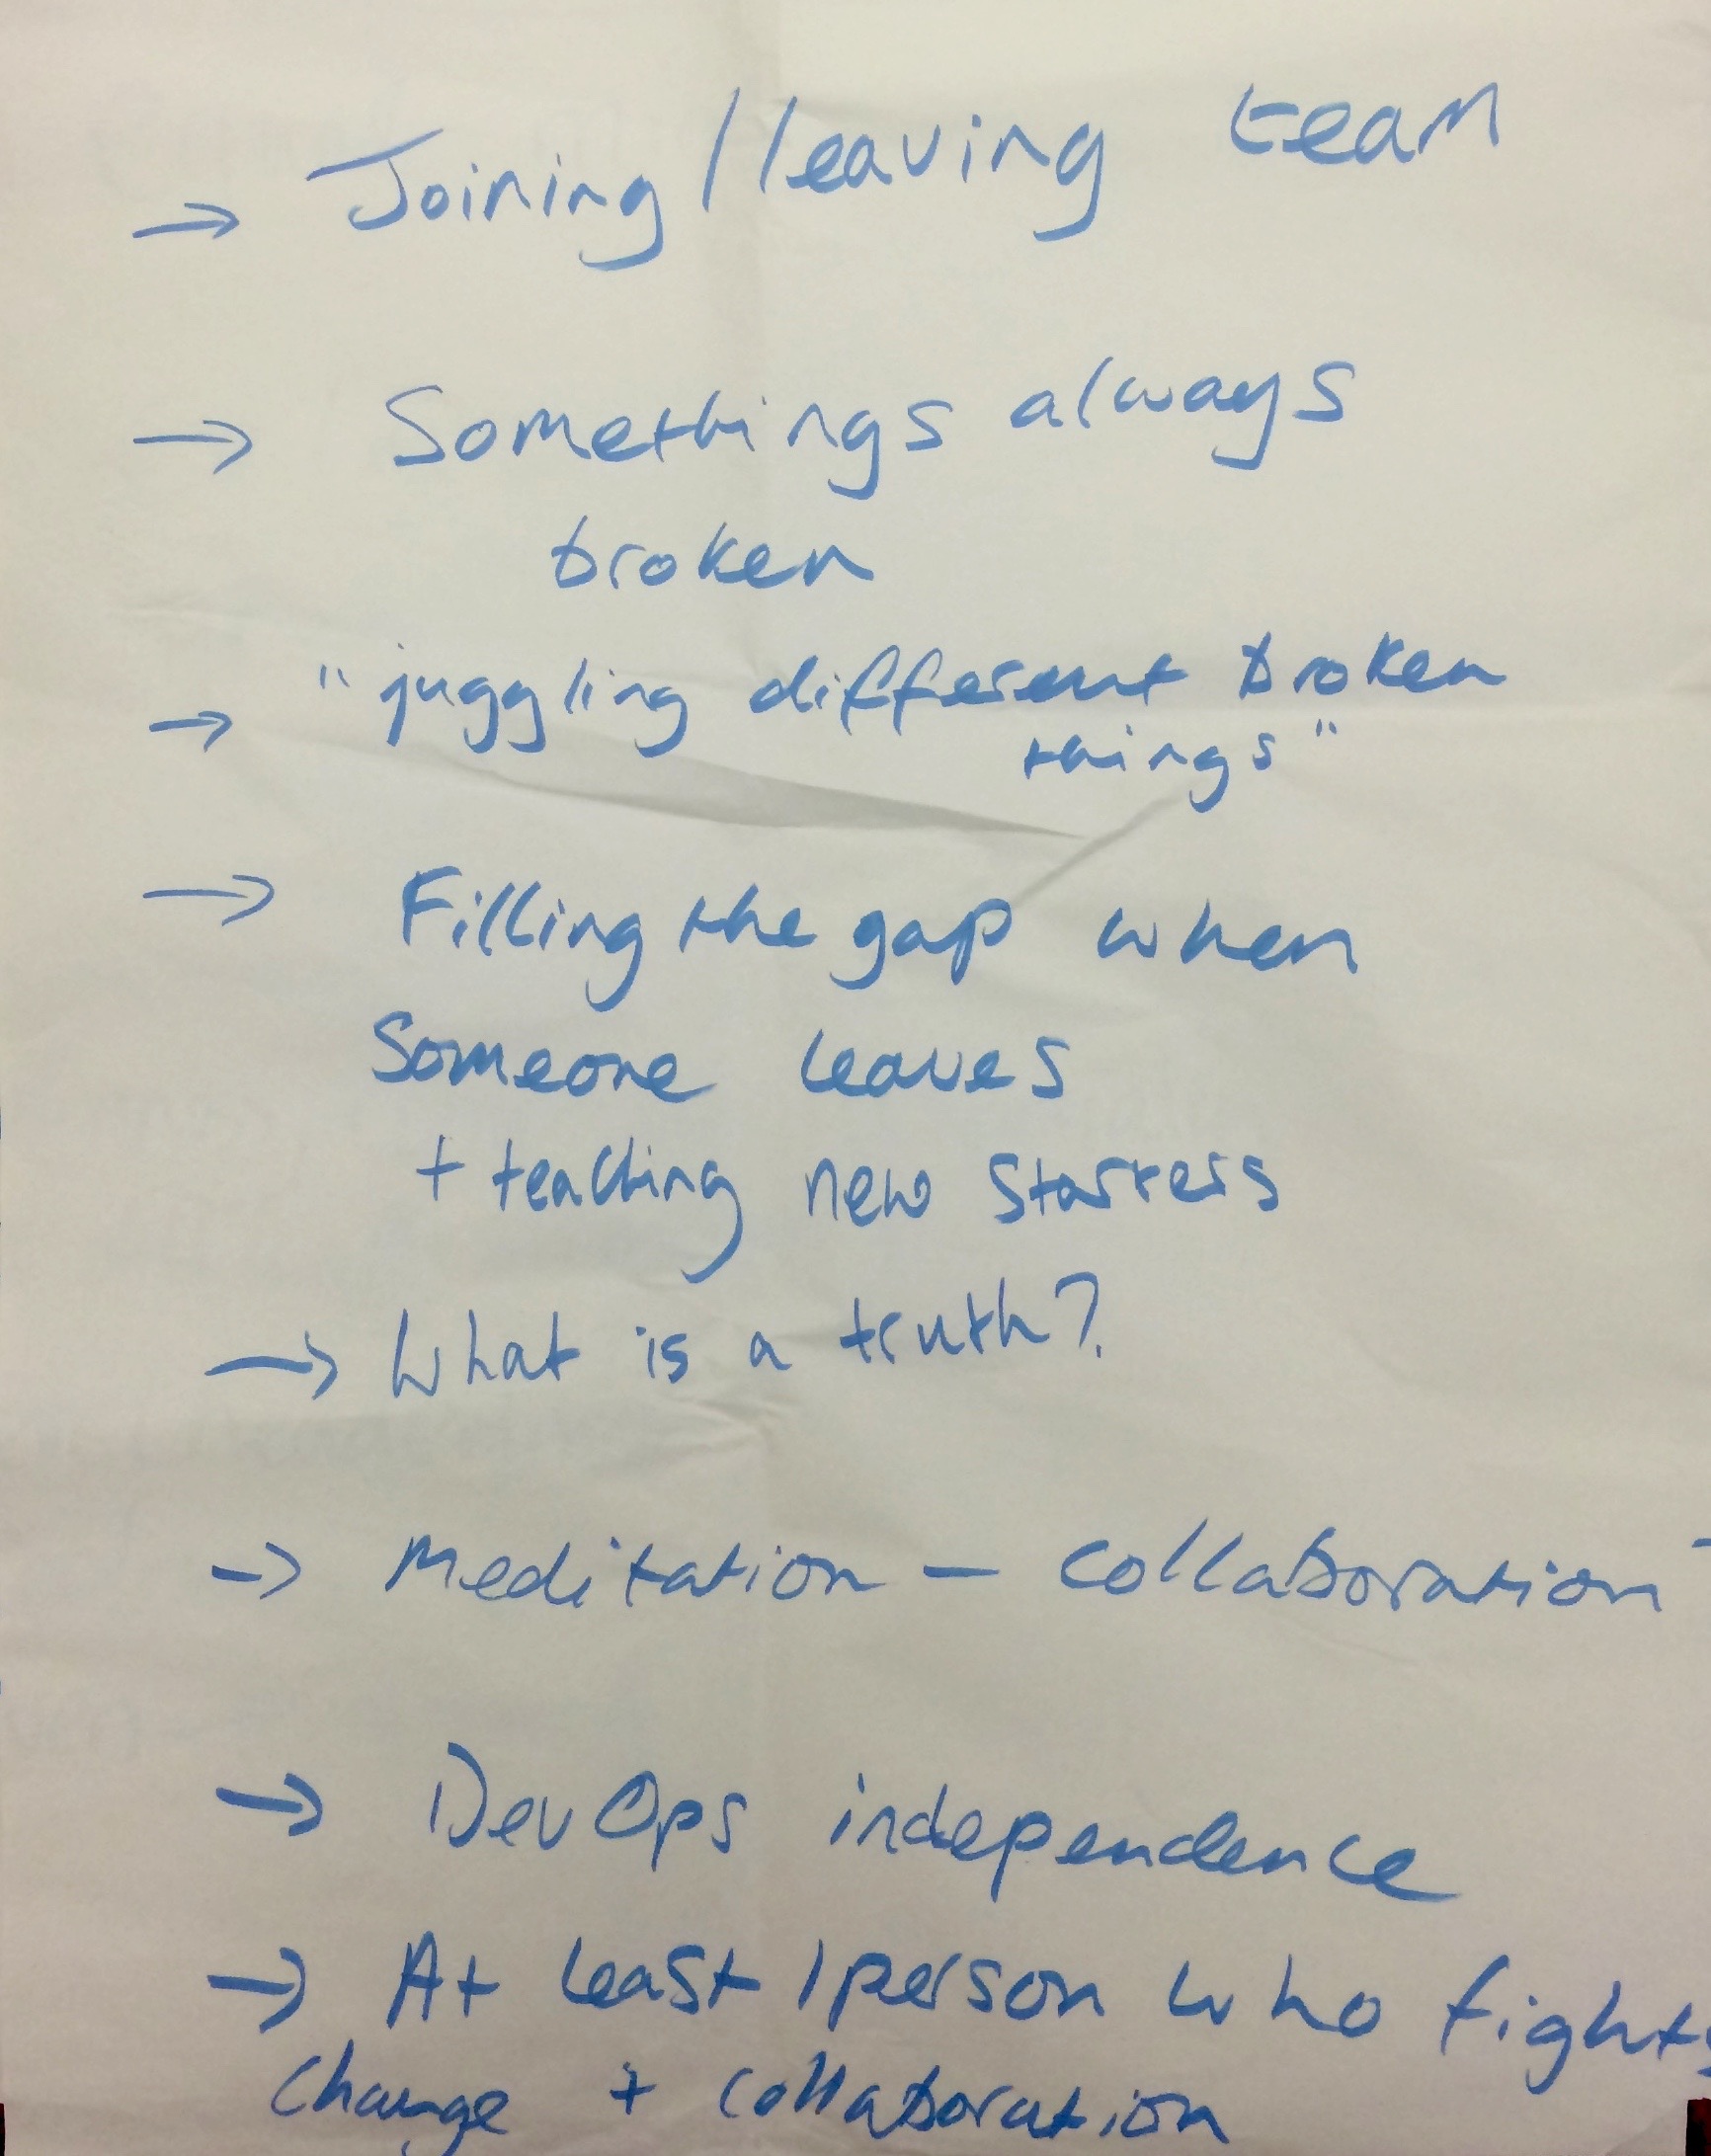 → Joining / leaving team
→ Somethings always
broken
→ "juggling different broken
things"
→ Filling the gap when
Someone leaves
+ teaching new starters
→ What is a truth?
→ Meditation – collaboration
→ DevOps independence
→ At least 1 person who fights
change + collaboration